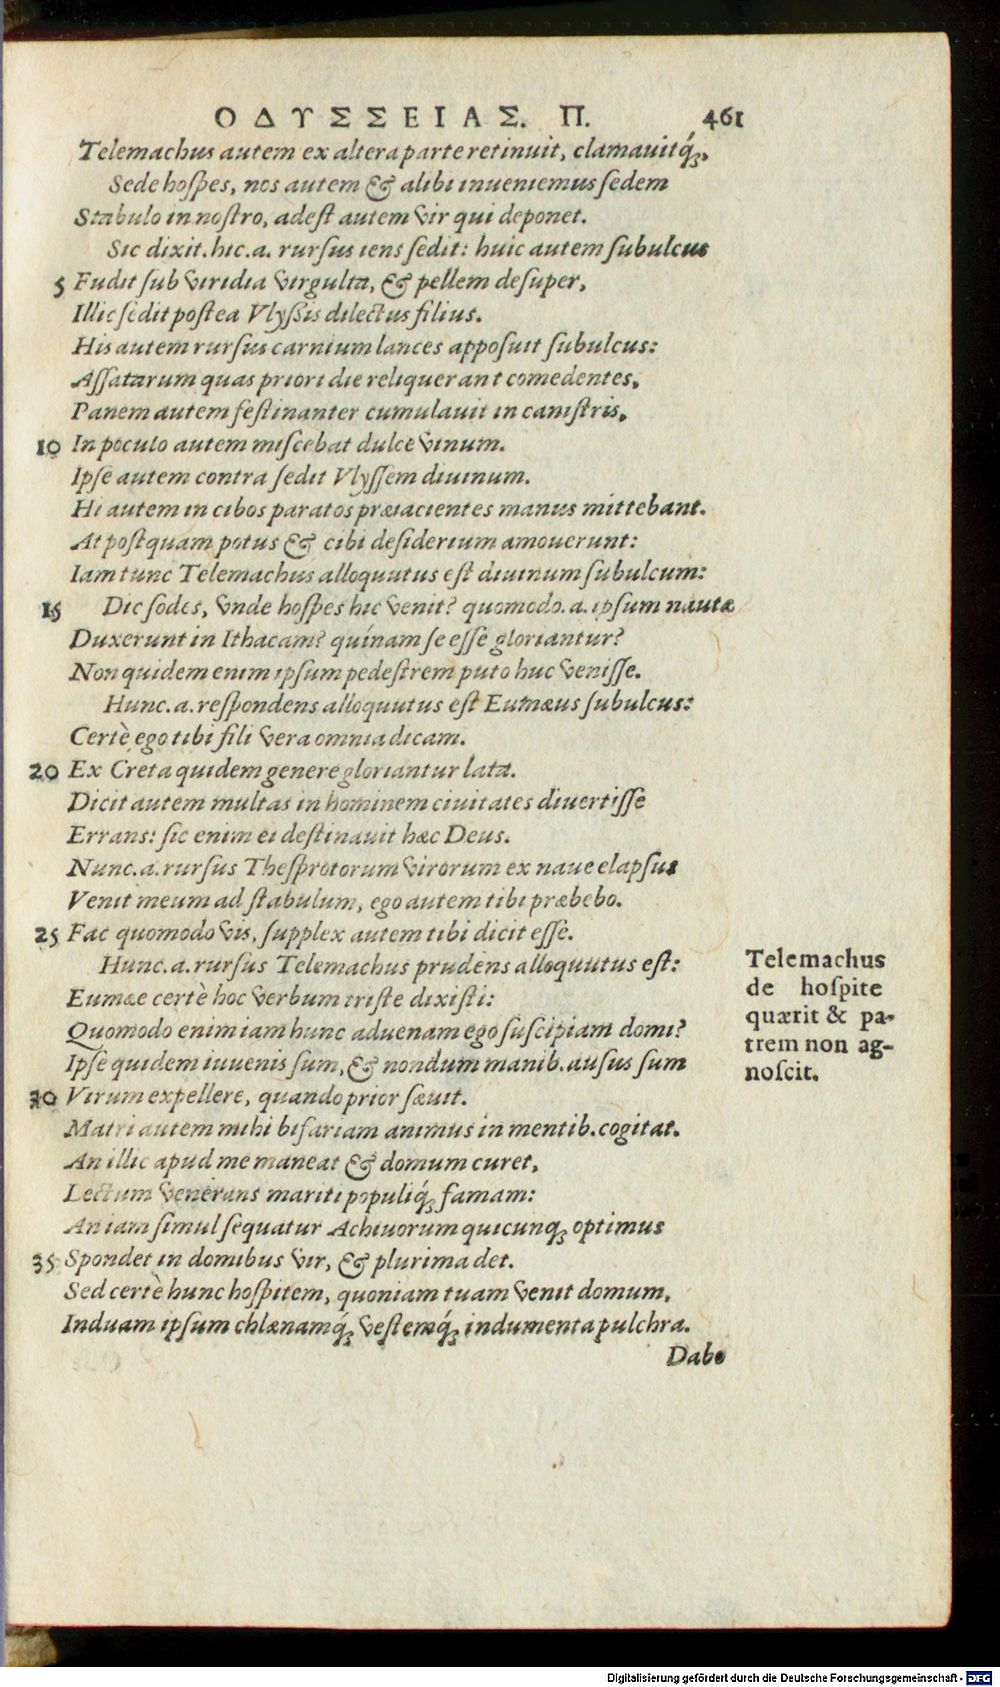 ΟΔΥΣΣΕΙΑΣ. Π. 461
Telemachus autem ex altera parte retinuit, clamauitq́;,
Sede hoſpes, nos autem & alibi inueniemus ſedem
Stabulo in noſtro, adeſt autem vir qui deponet.
Sic dixit. hic. a. rurſus iens ſedit: huic autem ſubulcus
5 Fudit ſub viridia virgulta, & pellem deſuper,
Illic ſedit poſtea Vlyſſis dilectus filius.
His autem rurſus carnium lances appoſuit ſubulcus:
Aſſatarum quas priori die reliquerant comedentes,
Panem autem feſtinanter cumulauit in caniſtris,
10 In poculo autem miſcebat dulce vinum.
Ipſe autem contra ſedit Vlyſſem diuinum.
Hi autem in cibos paratos præiacientes manus mittebant.
At poſtquam potus & cibi deſiderium amouerunt:
Iam tunc Telemachus alloquutus eſt diuinum ſubulcum:
15 Dic ſodes, vnde hoſpes hic venit? quomodo. a. ipſum nautæ
Duxerunt in Ithacam? quínam ſe eſſe gloriantur?
Non quidem enim ipſum pedeſtrem puto huc veniſſe.
Hunc. a. reſpondens alloquutus eſt Eumæus ſubulcus:
Certè ego tibi fili vera omnia dicam.
20 Ex Creta quidem genere gloriantur lata.
Dicit autem multas in hominem ciuitates diuertiſſe
Errans: ſic enim ei deſtinauit hæc Deus.
Nunc. a. rurſus Theſprotorum virorum ex naue elapſus
Venit meum ad ſtabulum, ego autem tibi præbebo.
25 Fac quomodo vis, ſupplex autem tibi dicit eſſe.
Hunc. a. rurſus Telemachus prudens alloquutus eſt:
Eumæe certè hoc verbum triſte dixiſti:
Quomodo enim iam hunc aduenam ego ſuſcipiam domi?
Ipſe quidem iuuenis ſum, & nondum manib. auſus ſum
30 Virum expellere, quando prior ſæuit.
Matri autem mihi bifariam animus in mentib. cogitat.
An illic apud me maneat & domum curet,
Lectum venerans mariti populiq́; famam:
An iam ſimul ſequatur Achiuorum quicunq; optimus
35 Spondet in domibus vir, & plurima det.
Sed certè hunc hoſpitem, quoniam tuam venit domum,
Induam ipſum chlænamq́; veſtemq́; indumenta pulchra.
Dabo
Telemachus
de hoſpite
quærit & pa-
trem non ag-
noſcit.
Digitalisierung gefördert durch die Deutsche Forschungsgemeinschaft - DFG